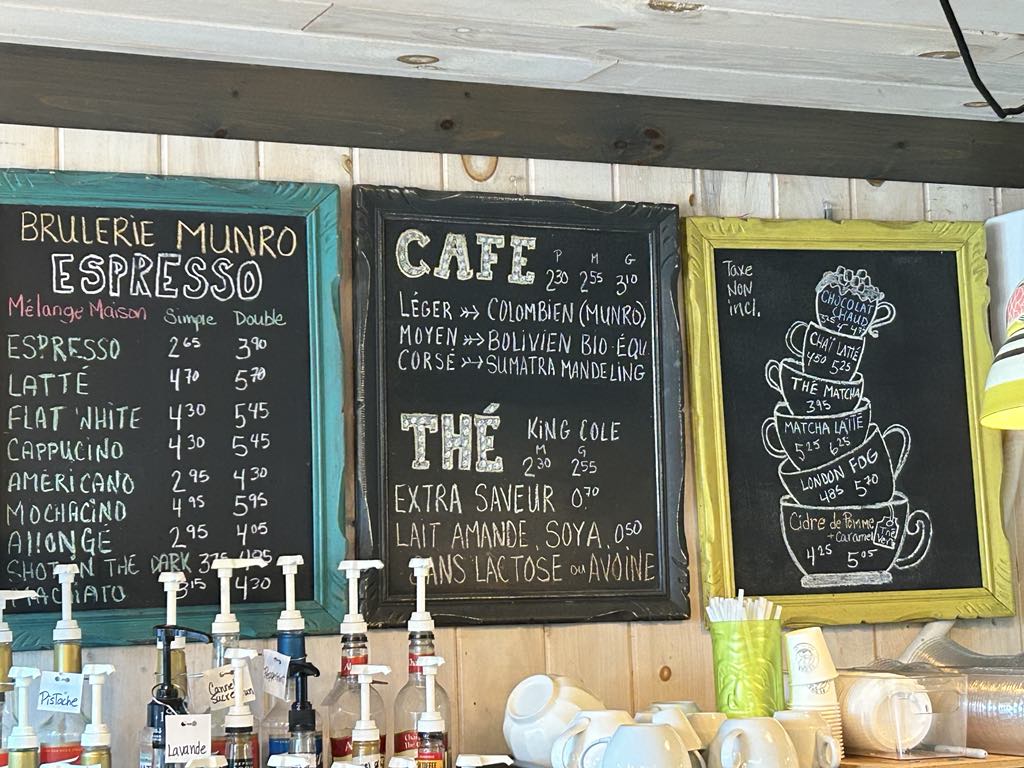 BRULERIE MUNRO
ESPRESSO
Mélange Maison Simple Double
ESPRESSO 2.65 3.90
LATTÉ 4.70 5.70
FLAT WHITE 4.30 5.45
CAPPUCINO 4.30 5.45
AMÉRICANO 2.95 4.30
MOCHACINO 4.95 5.95
AllONGÉ 2.95 4.05
SHOT IN THE DARK
4.30
CAFE
P M G
2.30 2.55 3.10
LÉGER COLOMBIEN (MUNRO)
MOYEN BOLIVIEN BIO·ÉQU.
CORSÉ SUMATRA MANDELING
THÉ KING COLE
M G
2.30 2.55
EXTRA SAVEUR 0.70
LAIT AMANDE, SOYA, 0.50
SANS LACTOSE ou AVOINE
Taxe
NON
incl.
CHOCOLAT
CHAUD
CHAÏ LATTÉ
4.50 5.25
THÉ MATCHA
3.95
MATCHA LATTÉ
5.25 6.25
LONDON FOG
4.85 5.70
Cidre de Pomme
+ Caramel
4.25 5.05
Pistache
Lavande